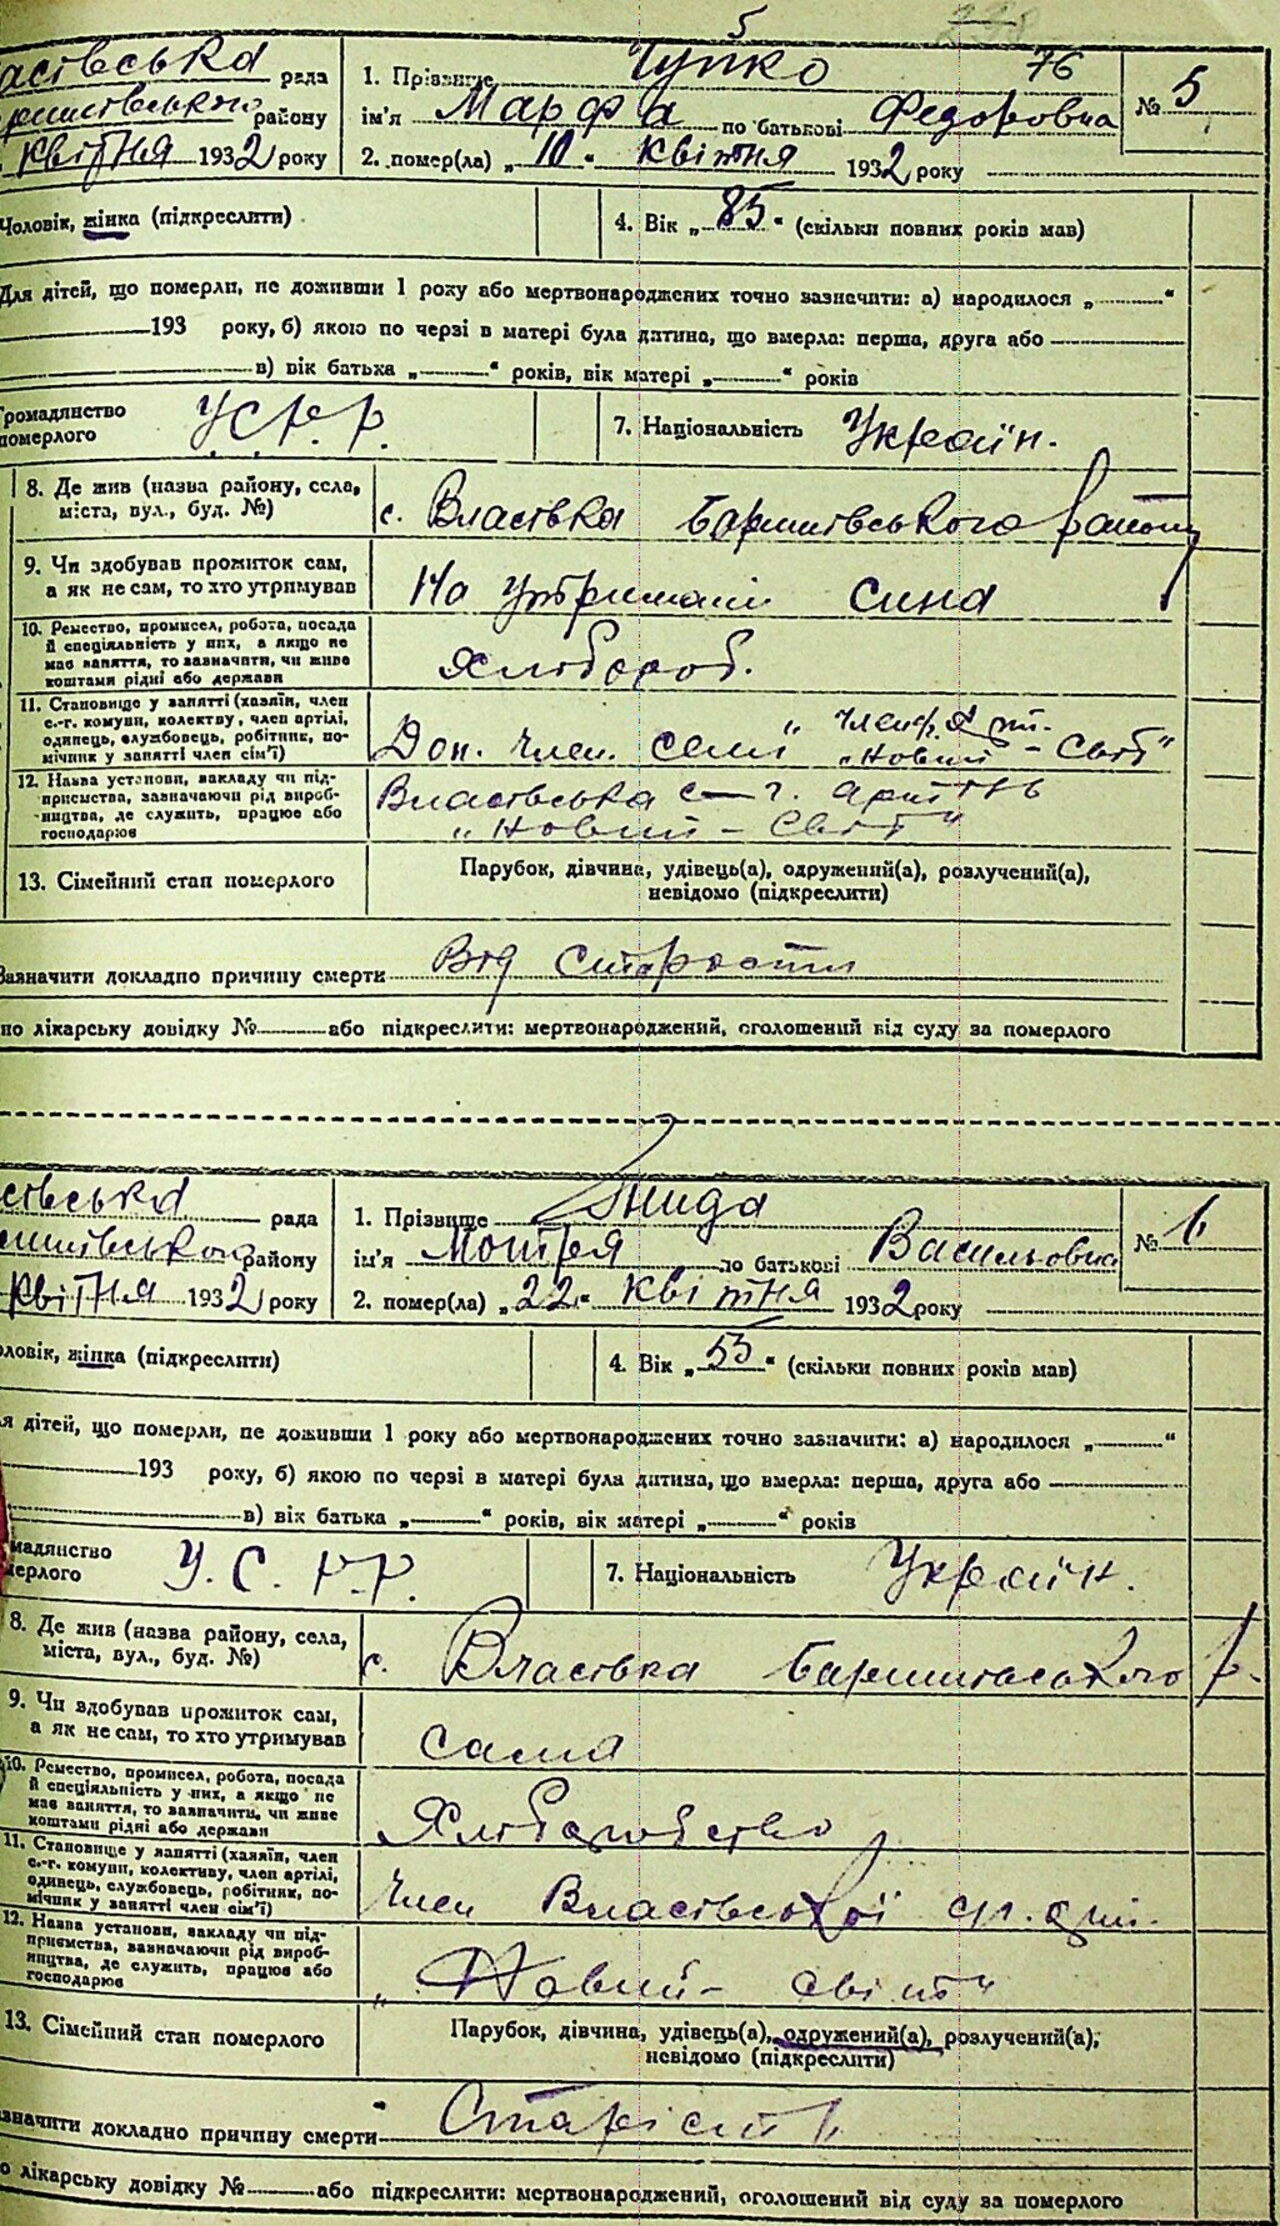 5
асівська рада
1. Прізвище Чуйко 76
№ 5
району
ім'я Марфа по батькові Федоровна
квітня 1932 року
2. помер(ла) „10“ квітня 1932 року
Чоловік, жінка (підкреслити)
4. Вік „85“ (скільки повних років мав)
Для дітей, що померли, не доживши 1 року або мертвонароджених точно зазначити: а) народилося „ “
193 року, б) якою по черзі в матері була дитина, що вмерла: перша, друга або
в) вік батька „ “ років, вік матері „ “ років
громадянство
померлого
У.С.Р.Р.
7. Національність Україн.
8. Де жив (назва району, села,
міста, вул., буд. №)
с. Власівка Баришівського району
9. Чи здобував прожиток сам,
а як не сам, то хто утримував
На утриманні сина
10. Ремество, промисел, робота, посада
й спеціяльність у них, а якщо не
має заняття, то зазначити, чи живе
коштами рідні або держави
Хлібороб.
11. Становище у занятті (хазяїн, член
с.-г. комуни, колективу, член артілі,
одинець, службовець, робітник, по-
мічник у занятті член сім'ї)
Доп. член. семї
„Новий - Світ“
12. Назва установи, закладу чи під-
приємства, зазначаючи рід вироб-
ництва, де служить, працює або
господарює
Власівська с-г. артіль
„Новий - Світ“
13. Сімейний стан померлого
Парубок, дівчина, удівець(а), одружений(а), розлучений(а),
невідомо (підкреслити)
Зазначити докладно причину смерти Від старости
но лікарську довідку № або підкреслити: мертвонароджений, оголошений від суду за померлого
сівська рада
1. Прізвище Гнида
№ 6
району
ім'я Мотря по батькові Васильовна
квітня 1932 року
2. помер(ла) „22“ квітня 1932 року
оловік, жінка (підкреслити)
4. Вік „55“ (скільки повних років мав)
ля дітей, що померли, не доживши 1 року або мертвонароджених точно зазначити: а) народилося „ “
193 року, б) якою по черзі в матері була дитина, що вмерла: перша, друга або
в) вік батька „ “ років, вік матері „ “ років
мадянство
мерлого
У.С.Р.Р.
7. Національність Україн.
8. Де жив (назва району, села,
міста, вул., буд. №)
с. Власівка Баришівського р.
9. Чи здобував прожиток сам,
а як не сам, то хто утримував
сама
10. Ремество, промисел, робота, посада
й спеціяльність у них, а якщо не
має заняття, то зазначити, чи живе
коштами рідні або держави
Хліборобство
11. Становище у занятті (хазяїн, член
с.-г. комуни, колективу, член артілі,
одинець, службовець, робітник, по-
мічник у занятті член сім'ї)
Член Власівської
12. Назва установи, закладу чи під-
приємства, зазначаючи рід вироб-
ництва, де служить, працює або
господарює
„Новий - світ“
13. Сімейний стан померлого
Парубок, дівчина, удівець(а), одружений(а), розлучений(а),
невідомо (підкреслити)
азначити докладно причину смерти Старість
о лікарську довідку № або підкреслити: мертвонароджений, оголошений від суду за померлого